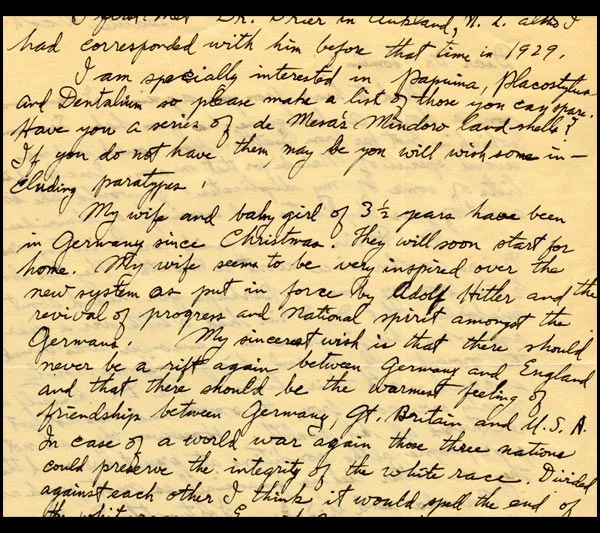 I first met Dr. Drier in Aukland, N. Z. altho I
had corresponded with him before that time in 1929.
I am specially interested in Papuina, Placostylus
and Dentalium so please make a list of those you can spare.
Have you a series of de Mesa's Mindoro land shells?
If you do not have them, may be you will wish some in-
cluding paratypes.
My wife and baby girl of 3½ years have been
in Germany since Christmas. They will soon start for
home. My wife seems to be very inspired over the
new system as put in force by Adolf Hitler and the
revival of progress and national spirit amongst the
Germans. My sincerest wish is that there should
never be a rift again between Germany and England
and that there should be the warmest feeling of
friendships between Germany, Gt. Britain and U.S.A.
In case of a world war again those three nations
could preserve the integrity of the white race. Divided
against each other I think it would spell the end of
the white race.